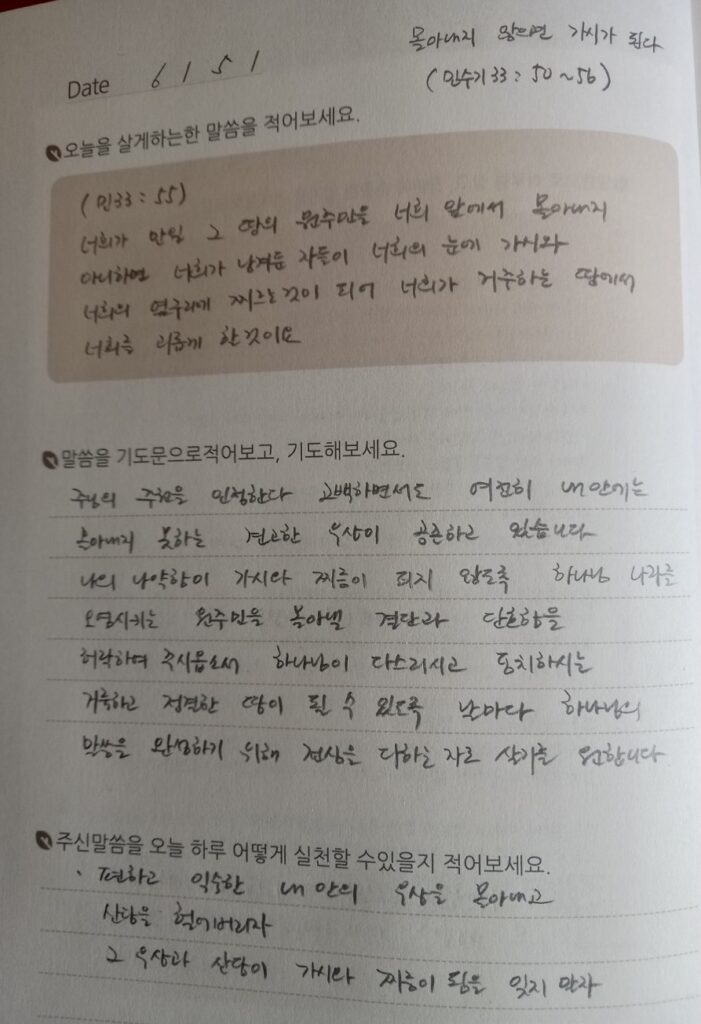 몰아내지 않으면 가시가 된다
Date 6 1 5 1
(민수기 33 : 50 ~ 56)
오늘을 살게하는한 말씀을 적어보세요.
(민33 : 55)
너희가 만일 그 땅의 원주민을 너희 앞에서 몰아내지
아니하면 너희가 남겨둔 자들이 너희의 눈에 가시와
너희의 옆구리에 찌르는것이 되어 너희가 거주하는 땅에서
너희를 괴롭게 할것이요
말씀을 기도문으로적어보고, 기도해보세요.
주님의 주권을 인정한다 고백하면서도 여전히 내 안에는
쫓아내지 못하는 견고한 우상이 공존하고 있습니다
나의 나약함이 가시와 찌름이 되지 않도록 하나님 나라를
오염시키는 원주민을 몰아낼 결단과 단호함을
허락하여 주시옵소서 하나님이 다스리시고 통치하시는
거룩하고 정결한 땅이 될 수 있도록 날마다 하나님의
말씀을 완성하기 위해 정성을 다하는 자로 살기를 원합니다
주신말씀을 오늘 하루 어떻게 실천할 수있을지 적어보세요.
· 편하고 익숙한 내 안의 우상을 몰아내고
산당을 헐어버리자
그 우상과 산당이 가시와 찌름이 됨을 잊지 말자